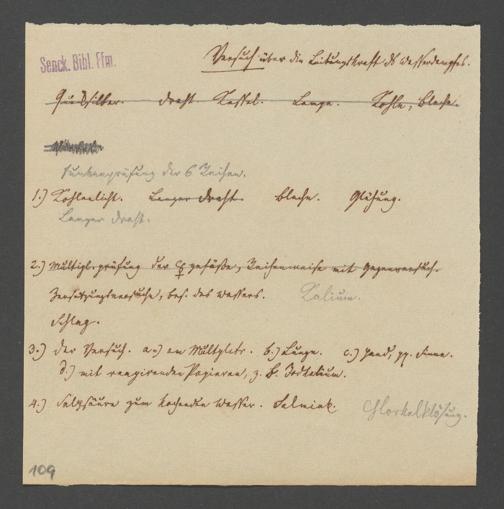 Senck. Bibl. Ffm.
Versuch über die Leitungskraft ds Wasserdampfes.
Quecksilber. Draht. Kessel. Lampe. Kohle, Bleche.
Funkenprüfung der 6 Reihen.
1.) Kohlenlicht. Langer Draht. Bleche. Glühung.
Langer Draht.
2.) Multiplprüfung der gefäße, Reihenweise mit Gegenversuch.
Zersetzungsversuche, bes. des Wassers. Kalium.
Schlag.
3.) Der Versuch. a.) am Multpltr. b.) Zunge. c.) Hand, pp.
d.) mit reagirenden Papieren, z. B. Jodkalium.
4.) Salzsäure zum kochenden Wasser. Salmiak. Chlorkalklösung.
109